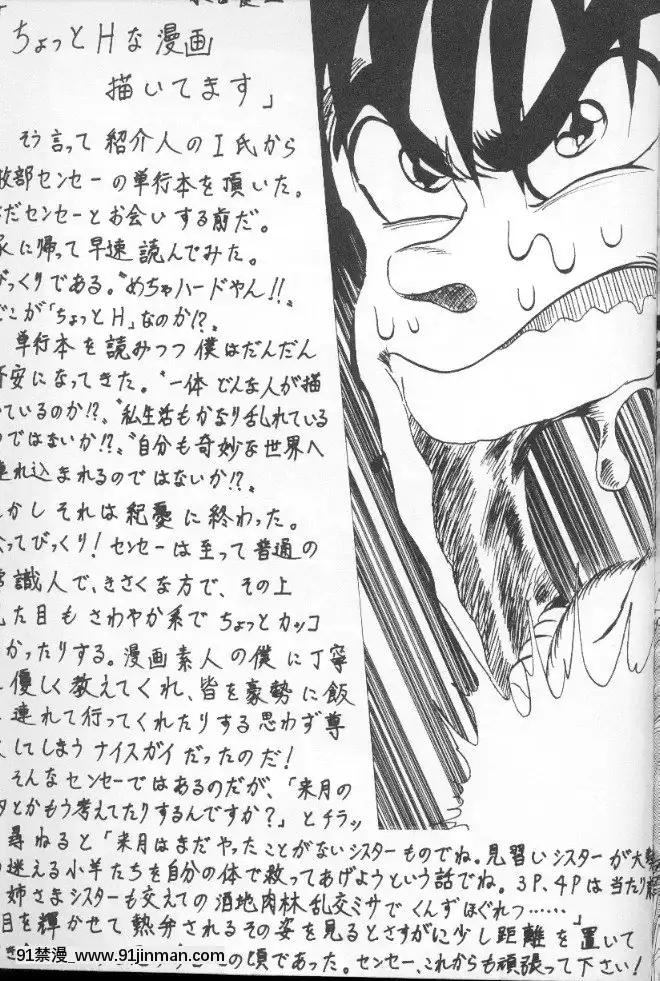 ちょっとHな漫画
描いてます」
そう言って紹介人のI氏から
敷部センセーの単行本を頂いた。
だセンセーとお会いする前だ。
に帰って早速読んでみた。
びっくりである。〝めちゃハードやん!!〟
どこが「ちょっとH」なのか!?
単行本を読みつつ僕はだんだん
安になってきた。〝一体どんな人が描
いているのか!?〟〝私生活もかなり乱れている
のではないか!?〟〝自分も奇妙な世界へ
連れ込まれるのではないか!?〟
かしそれは紀憂に終わった。
ってびっくり!センセーは至って普通の
常識人で、きさくな方で、その上
た目もさわやか系でちょっとカッコ
かったりする。漫画素人の僕に丁寧
優しく教えてくれ、皆を豪勢に飯
連れて行ってくれたりする思わず尊
してしまうナイスガイだったのだ!
そんなセンセーではあるのだが、「来月の
タとかもう考えてたりするんですか?」とチラッ
尋ねると「来月はまだやったことがないシスターものでね。見習いシスターが大勢
迷える小羊たちを自分の体で救ってあげようという話でね。3P、4Pは当たり
姉さまシスターも交えての酒地肉林乱交ミサでくんずほぐれつ……」
目を輝かせて熱弁されるその姿を見るとさすがに少し距離を置いて
の頃であった。センセー、これからも頑張って下さい!
91禁漫_www.91jinman.com